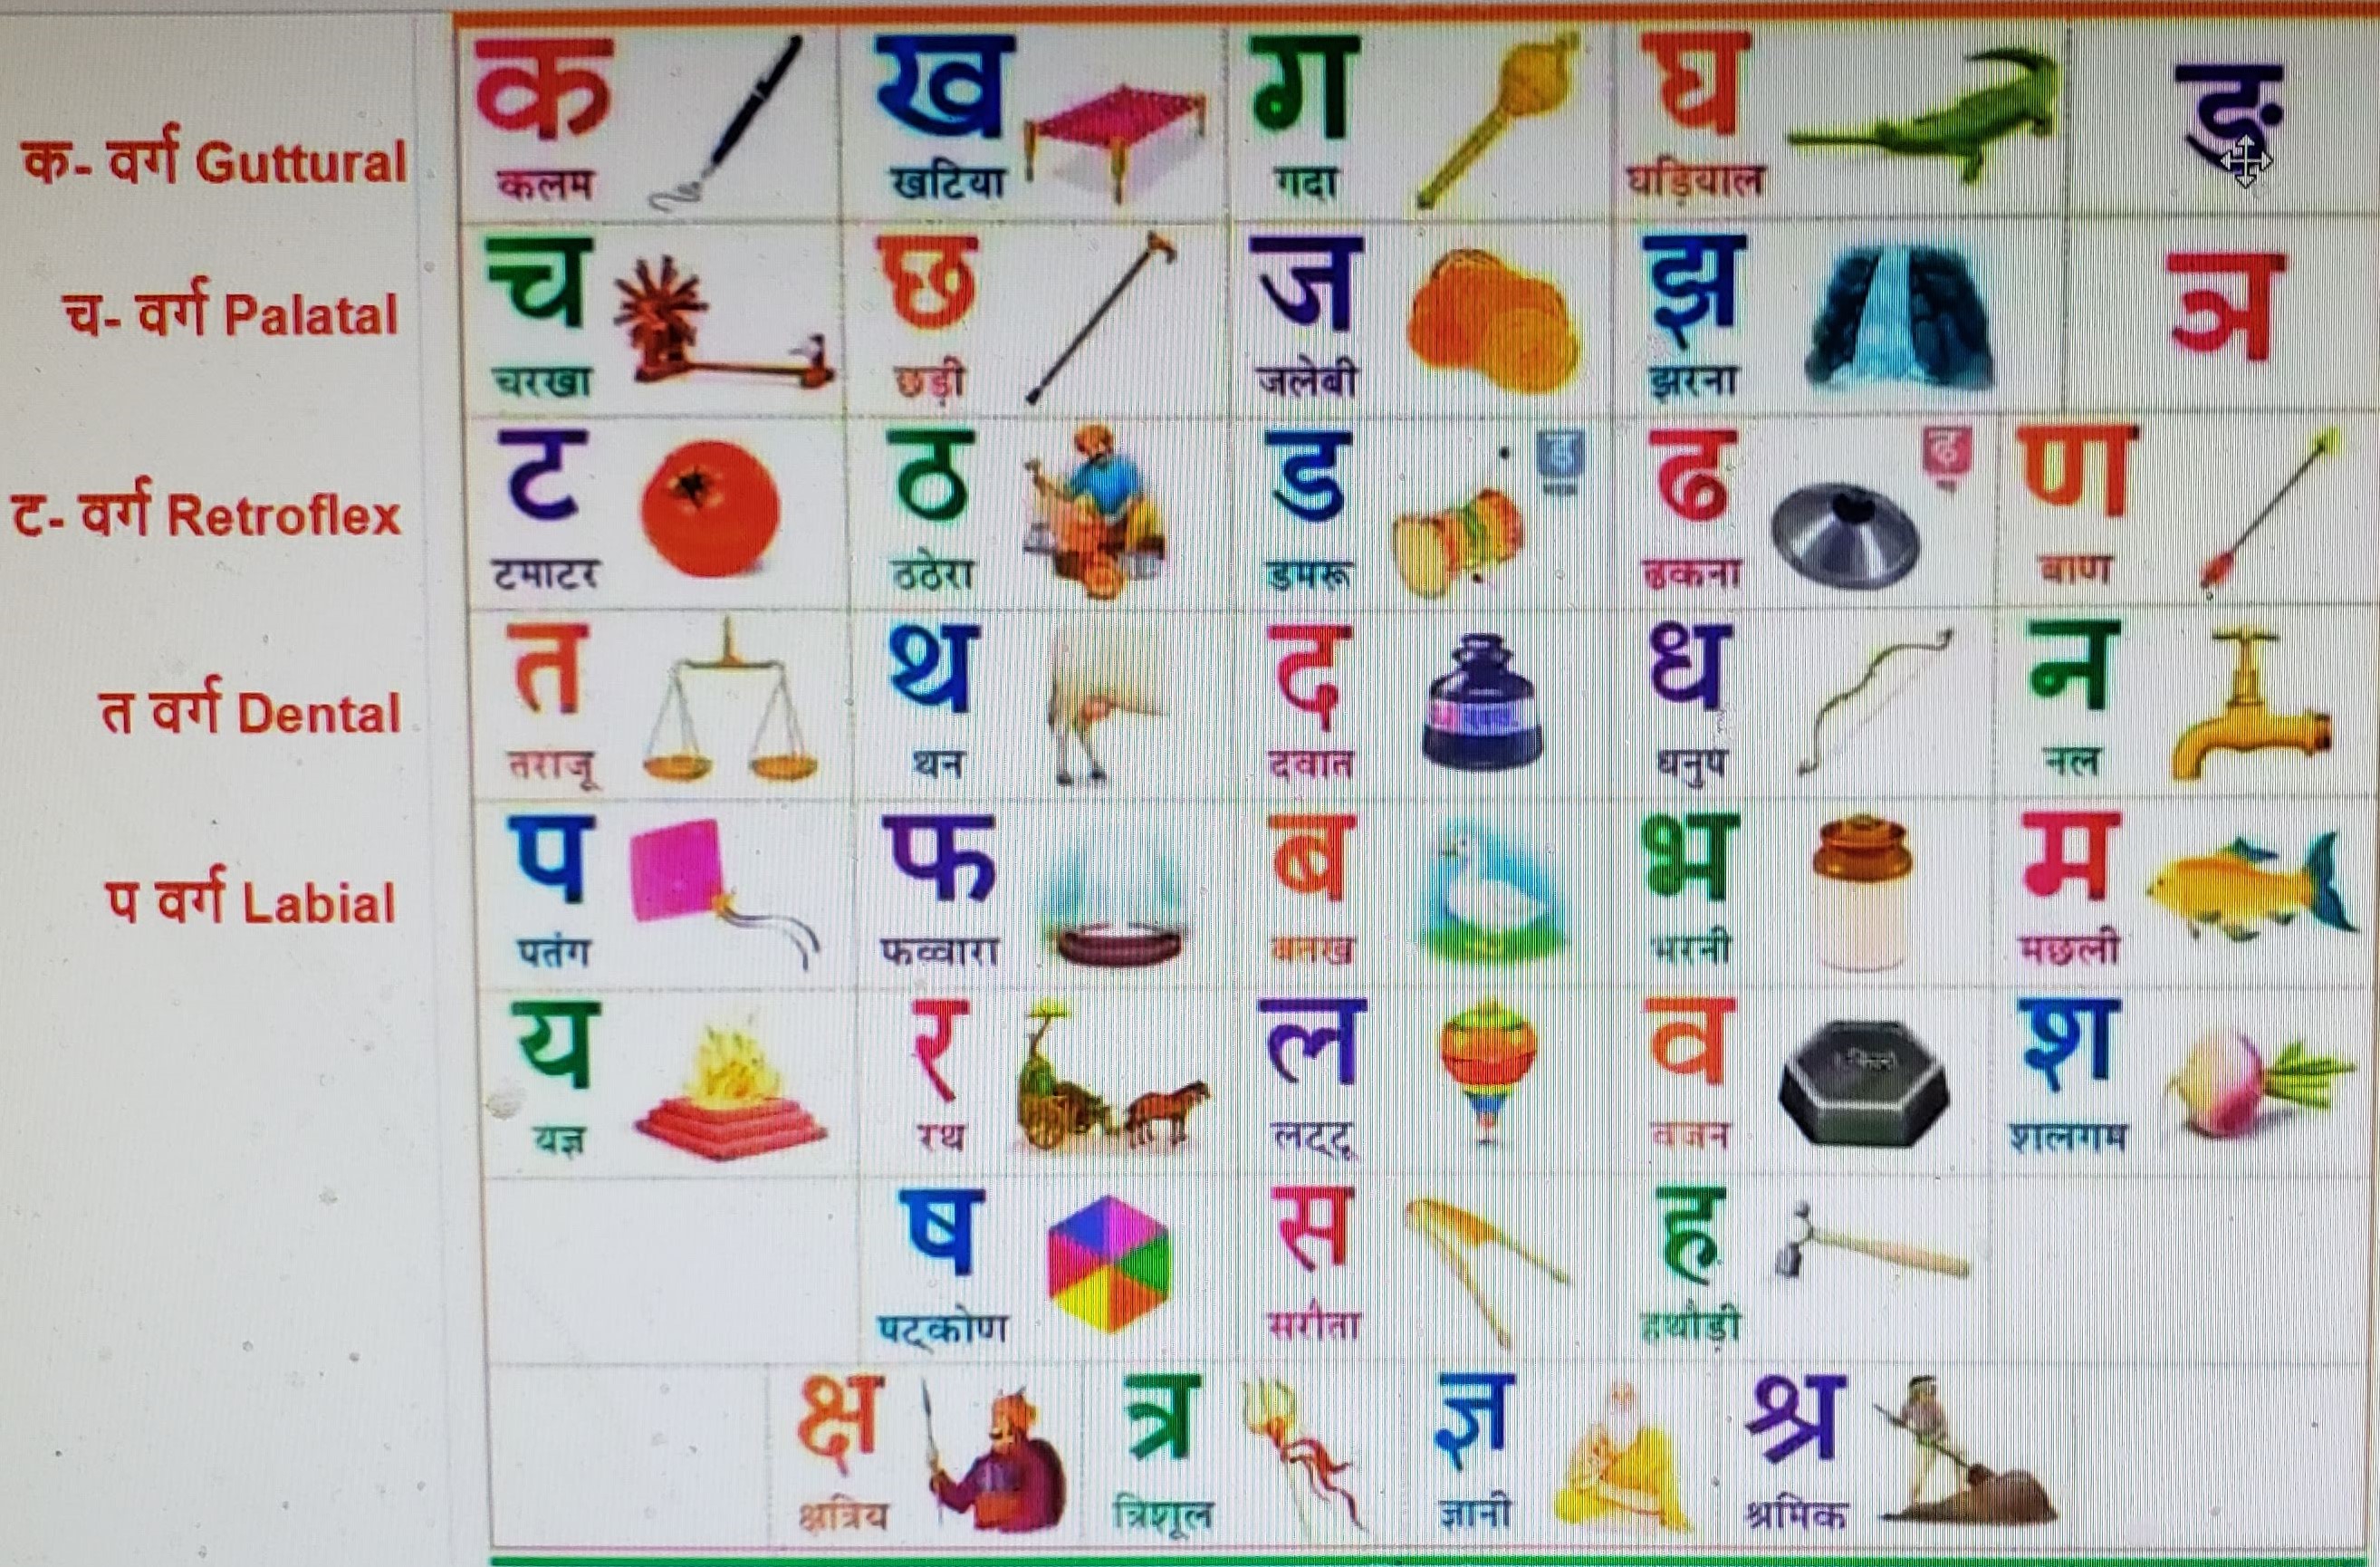 क ख ग घ ङ
क- वर्ग Guttural
कलम खटिया गदा घड़ियाल
च छ ज झ ञ
च- वर्ग Palatal
चरखा छड़ी जलेबी झरना
ट ठ ड ड ढ ढ ण
ट- वर्ग Retroflex
टमाटर ठठेरा डमरू ढकना बाण
त थ द ध न
त वर्ग Dental
तराजू थन दवात धनुष नल
प फ ब भ म
प वर्ग Labial
पतंग फव्वारा बतख भरनी मछली
य र ल व श
यज्ञ रथ लट्टू वजन शलगम
ष स ह
षट्कोण सरौता हथौड़ी
क्ष त्र ज्ञ श्र
क्षत्रिय त्रिशूल ज्ञानी श्रमिक